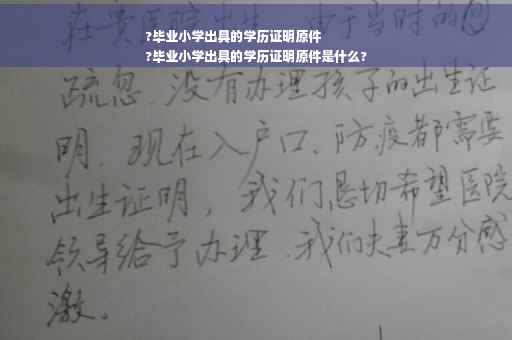 ?毕业小学出具的学历证明原件
?毕业小学出具的学历证明原件是什么?
在贵医院出生，由于当时的
疏忽.没有办理孩子的出生证
明.现在入户口、防疫都需要
出生证明，我们恳切希望医院
领导给予办理.我们夫妻万分感
激。